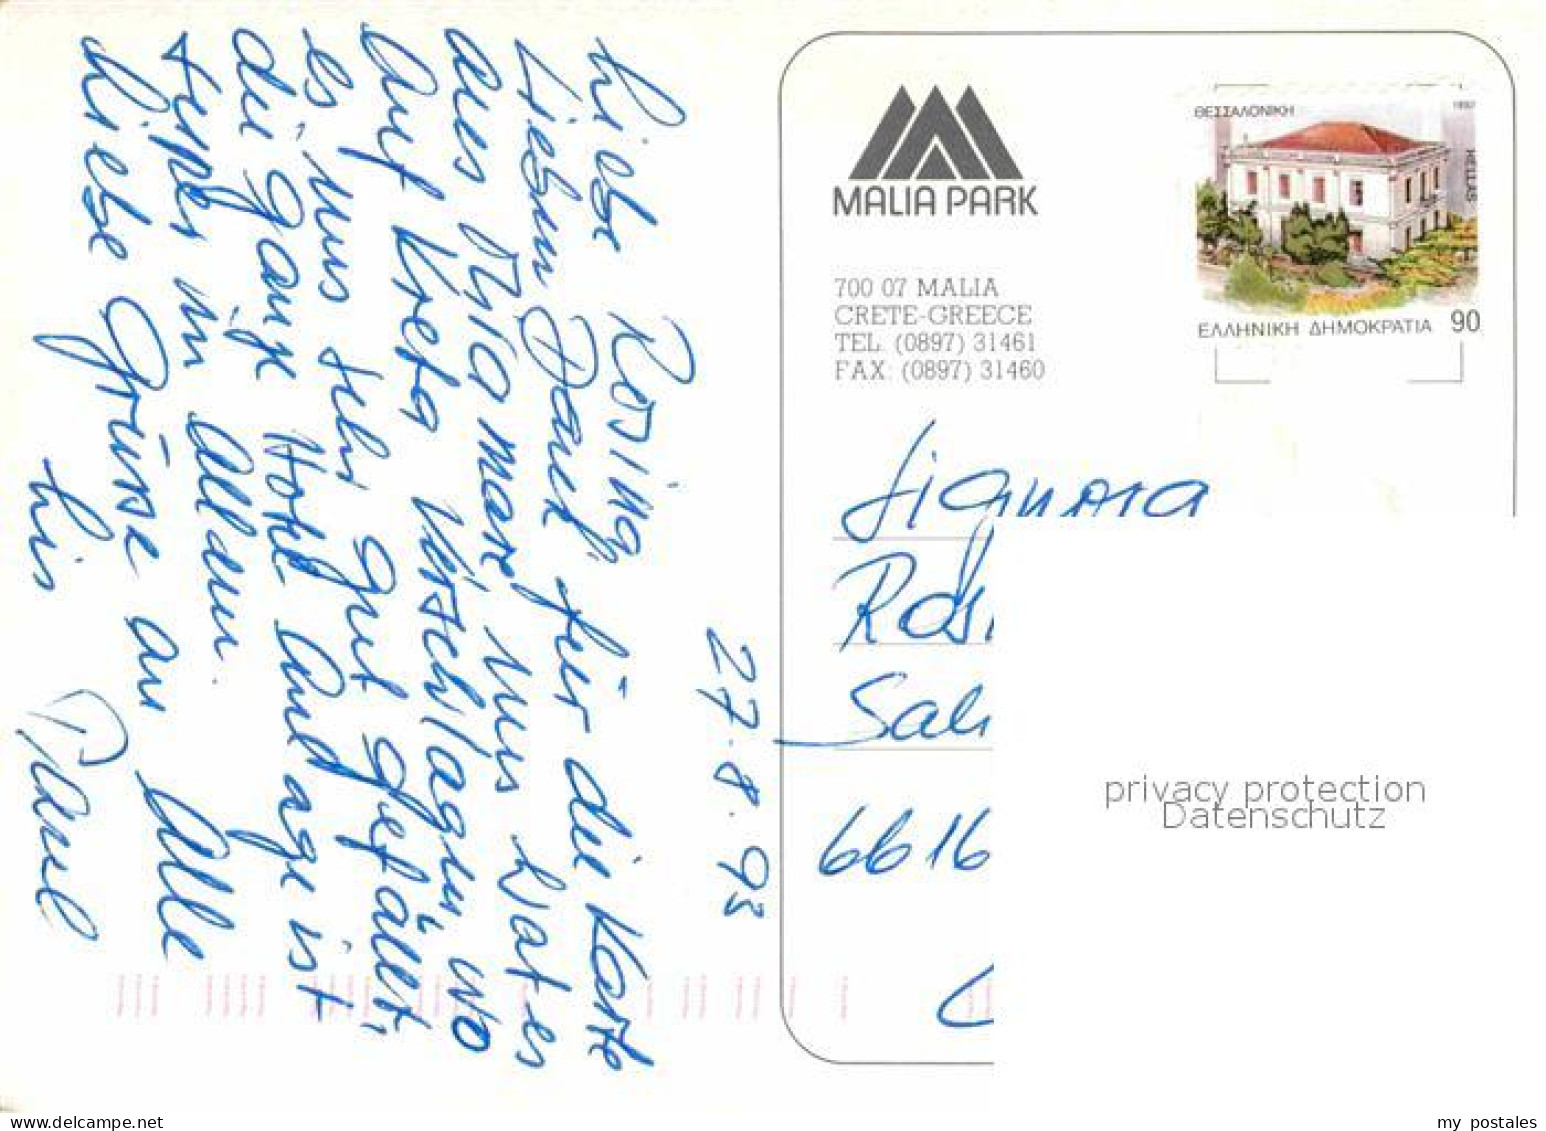 27.8.93
Liebe Rosing,
Lieben Dank für die Karte
aus Diamare uns hat es
auf Kreta verschlagen, wo
es uns sehr gut gefällt,
die ganze Hotel Anlage ist
super in Allem.
Liebe Grüsse an Alle
Lis Paul
MALIA PARK
700 07 MALIA
CRETE-GREECE
TEL. (0897) 31461
FAX: (0897) 31460
ΘΕΣΣΑΛΟΝΙΚΗ 1992
HELLAS
ΕΛΛΗΝΙΚΗ ΔΗΜΟΚΡΑΤΙΑ 90
Signora
Rosi
Sal
6616
privacy protection
Datenschutz
my postales